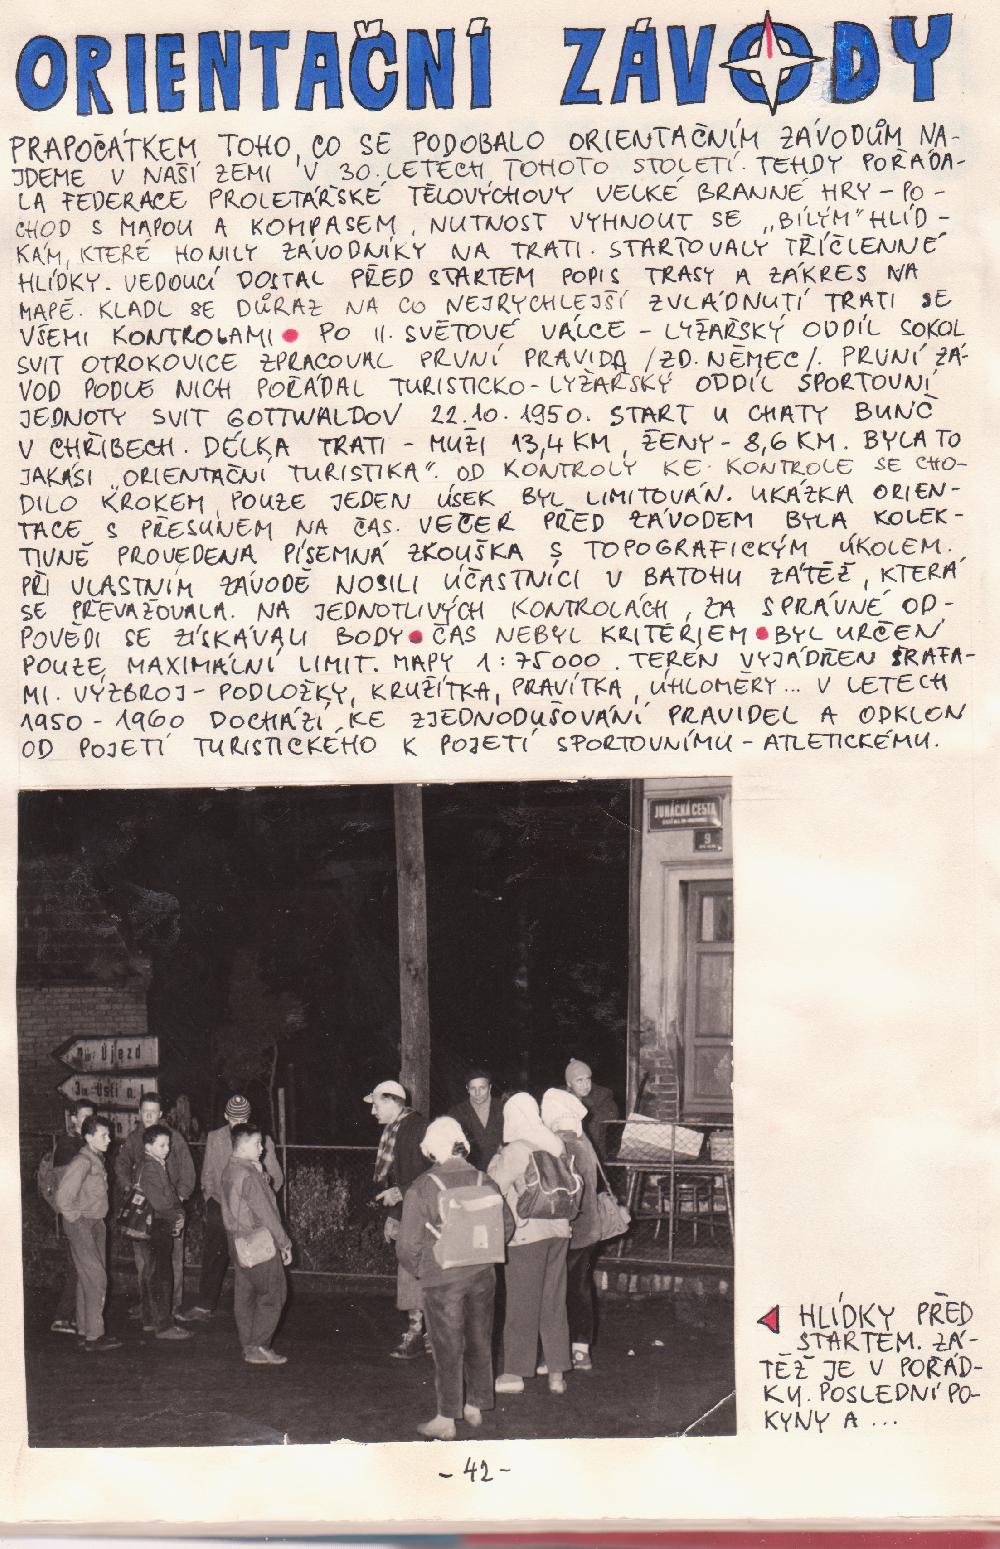 ORIENTAČNÍ ZÁVODY
PRAPOČÁTKEM TOHO, CO SE PODOBALO ORIENTAČNÍM ZÁVODŮM NA-
JDEME V NAŠÍ ZEMI V 30. LETECH TOHOTO STOLETÍ. TEHDY POŘÁDA-
LA FEDERACE PROLETÁŘSKÉ TĚLOVÝCHOVY VELKÉ BRANNÉ HRY – PO-
CHOD S MAPOU A KOMPASEM, NUTNOST VYHNOUT SE „BÍLÝM" HLÍD-
KÁM, KTERÉ HONILY ZÁVODNÍKY NA TRATI. STARTOVALY TŘÍČLENNÉ
HLÍDKY. VEDOUCÍ DOSTAL PŘED STARTEM POPIS TRASY A ZÁKRES NA
MAPĚ. KLADL SE DŮRAZ NA CO NEJRYCHLEJŠÍ ZVLÁDNUTÍ TRATI SE
VŠEMI KONTROLAMI ● PO II. SVĚTOVÉ VÁLCE – LYŽAŘSKÝ ODDÍL SOKOL
SVIT OTROKOVICE ZPRACOVAL PRVNÍ PRAVIDA /ZD. NĚMEC/. PRVNÍ ZÁ-
VOD PODLE NICH POŘÁDAL TURISTICKO-LYŽAŘSKÝ ODDÍL SPORTOVNÍ
JEDNOTY SVIT GOTTWALDOV 22.10.1950. START U CHATY BUNČ
V CHŘIBECH. DÉLKA TRATI – MUŽI 13,4 KM, ŽENY – 8,6 KM. BYLA TO
JAKÁSI „ORIENTAČNÍ TURISTIKA". OD KONTROLY KE KONTROLE SE CHO-
DILO KROKEM, POUZE JEDEN ÚSEK BYL LIMITOVÁN. UKÁZKA ORIEN-
TACE S PŘESUNEM NA ČAS. VEČER PŘED ZÁVODEM BYLA KOLEK-
TIVNĚ PROVEDENA PÍSEMNÁ ZKOUŠKA S TOPOGRAFICKÝM ÚKOLEM.
PŘI VLASTNÍM ZÁVODĚ NOSILI ÚČASTNÍCI V BATOHU ZÁTĚŽ, KTERÁ
SE PŘEVAŽOVALA. NA JEDNOTLIVÝCH KONTROLÁCH, ZA SPRÁVNÉ OD-
POVĚDI SE ZÍSKÁVALI BODY ● ČAS NEBYL KRITÉRIEM ● BYL URČEN
POUZE MAXIMÁLNÍ LIMIT. MAPY 1:75000. TERÉN VYJÁDŘEN ŠRAFA-
MI. VÝZBROJ – PODLOŽKY, KRUŽÍTKA, PRAVÍTKA, ÚHLOMĚRY... V LETECH
1950 – 1960 DOCHÁZÍ KE ZJEDNODUŠOVÁNÍ PRAVIDEL A ODKLON
OD POJETÍ TURISTICKÉHO K POJETÍ SPORTOVNÍMU – ATLETICKÉMU.
JUNÁCKÁ CESTA
9
Újezd
Ústí n.
HLÍDKY PŘED
STARTEM. ZÁ-
TĚŽ JE V POŘÁD-
KU. POSLEDNÍ PO-
KYNY A ...
– 42 –